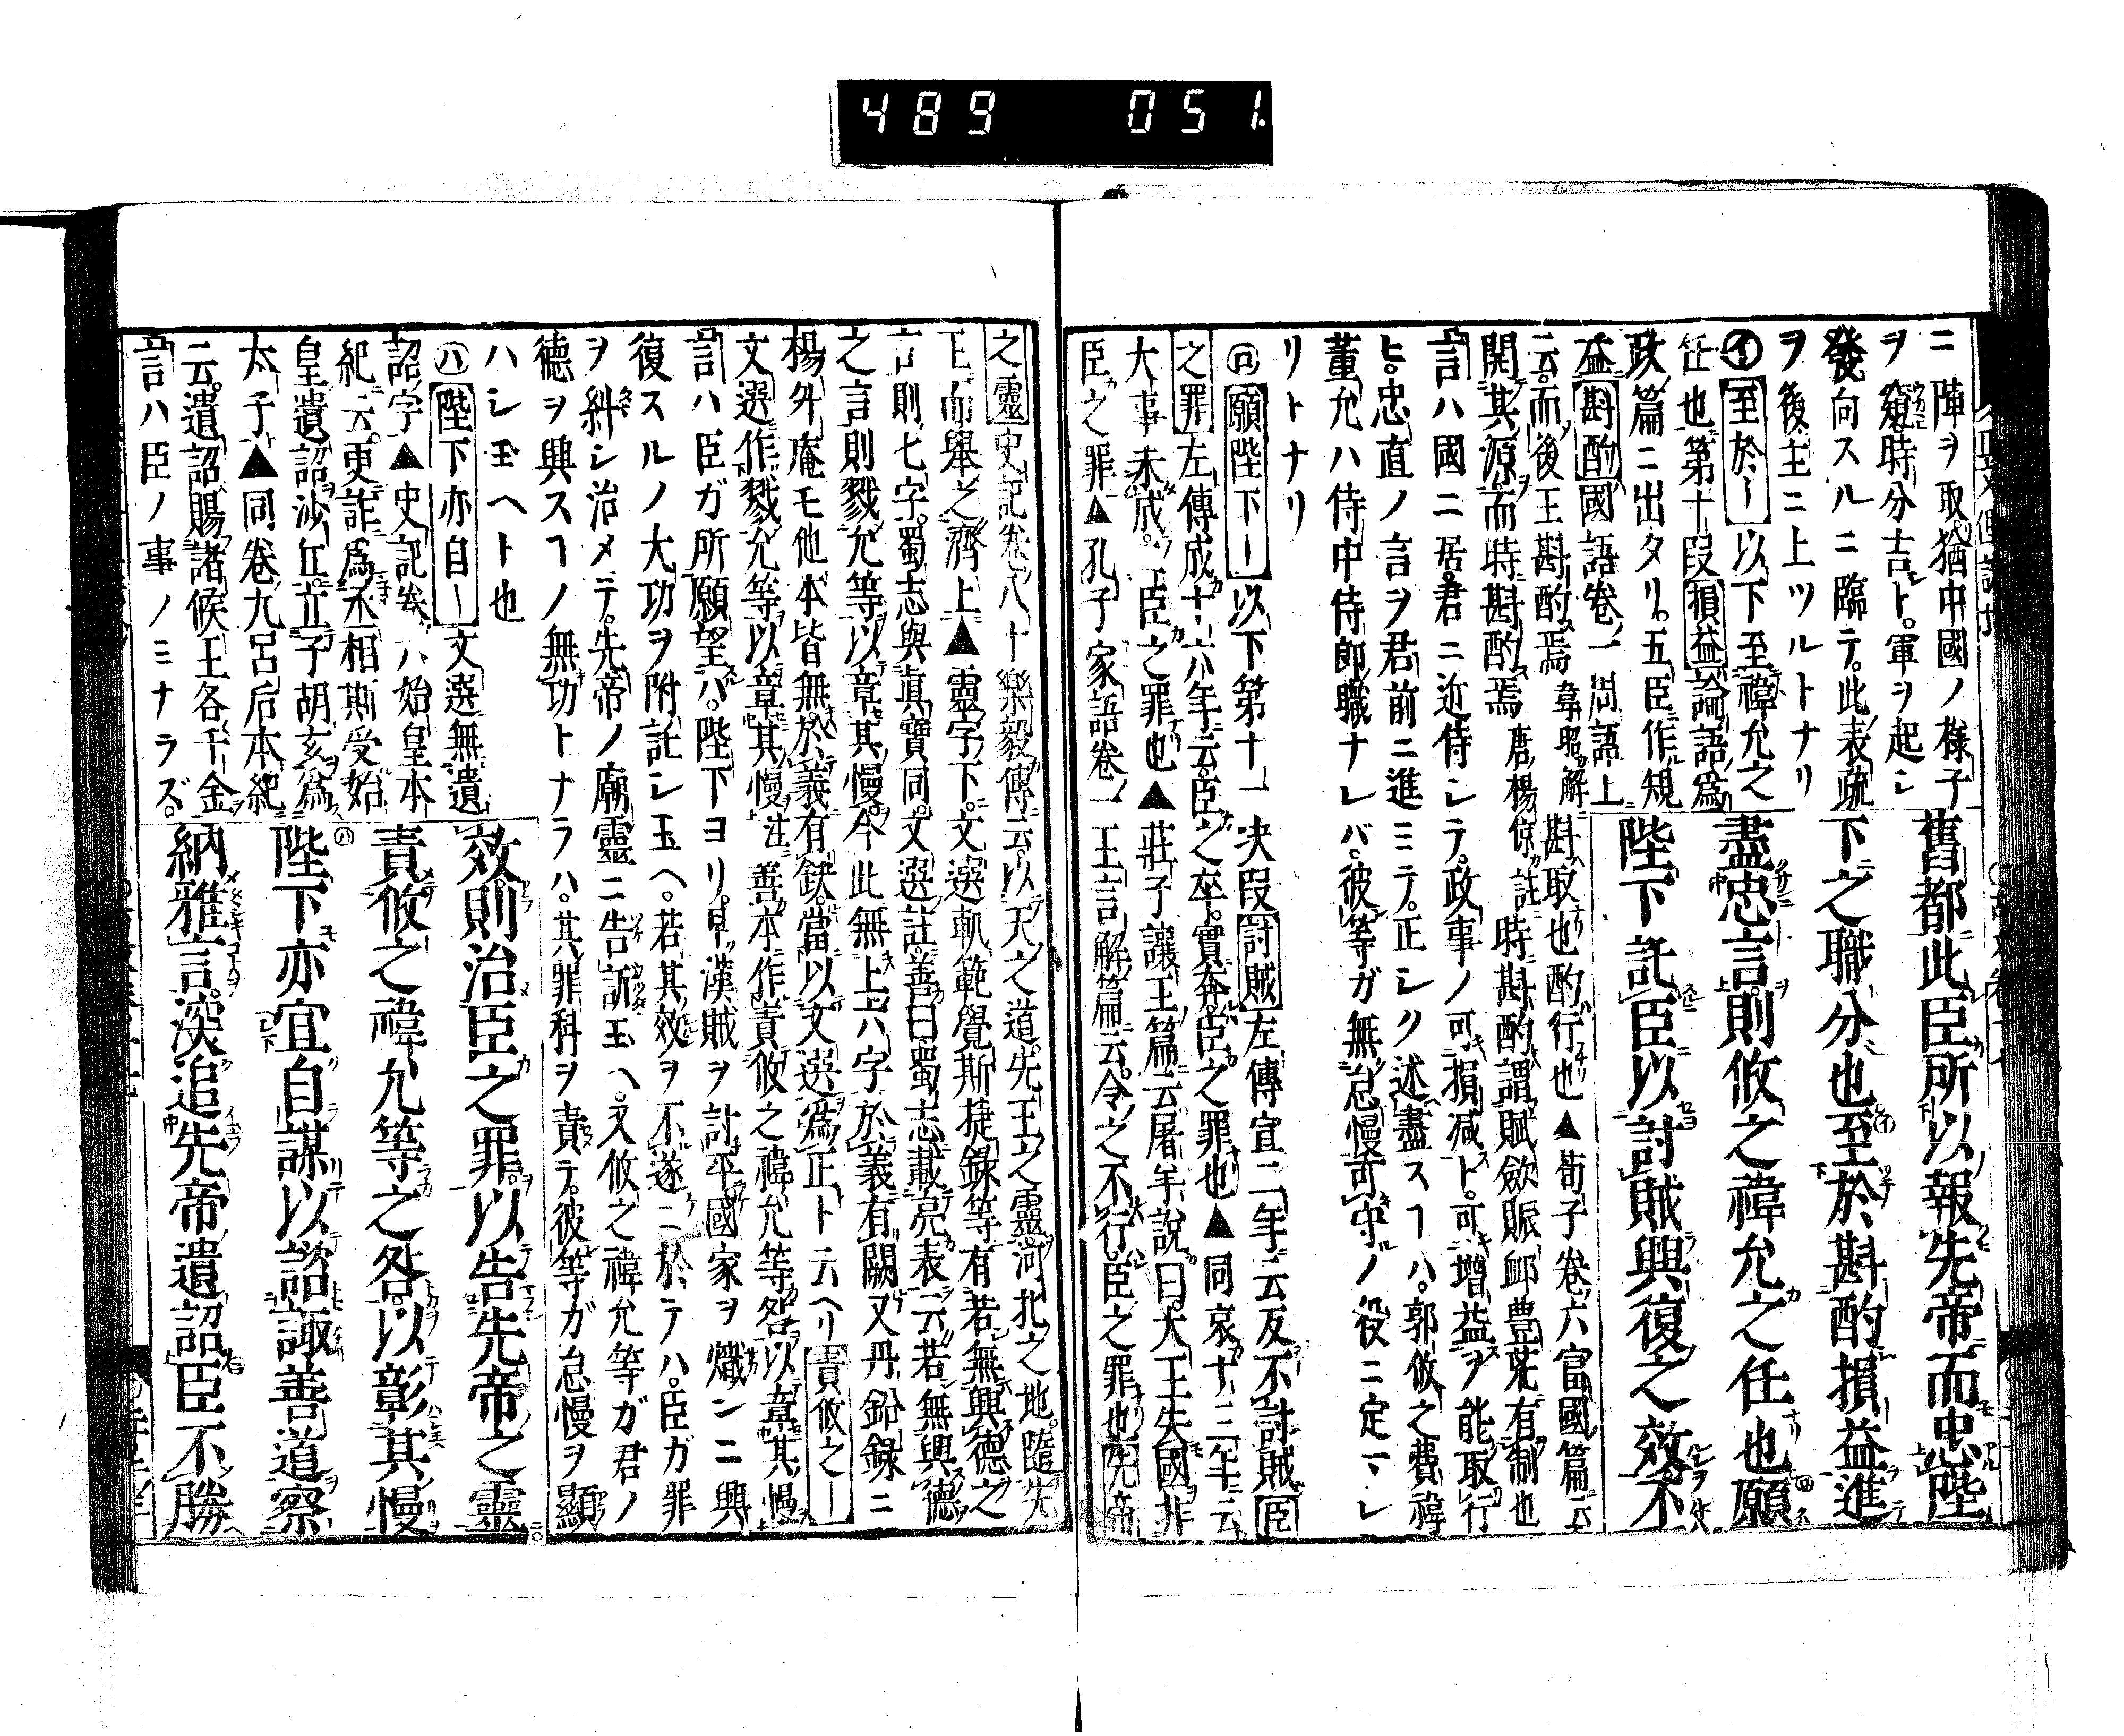 489 051.
ニ陣ヲ取猶中國ノ樣子
ヲ窺時分吉ト。軍ヲ起シ
發向スルニ臨テ。此表疏
ヲ後主ニ上ツルトナリ
舊都此臣所以報先帝而忠陛
下之職分也至於斟酌損益進
盡忠言則攸之禕允之任也願
陛下託臣以討賊興復之效不
㋑至於ー以下至禕允之
任也第十段損益論語爲
政篇ニ出タリ。五臣作規
益斟酌國語卷一周語上
云。而後王斟酌焉韋昭解斟取也酌行也▲荀子卷六富國篇云
開其源而時斟酌焉唐楊倞註時斟酌謂賦斂賑卹豊荒有制也
言ハ國ニ居。君ニ近侍シテ。政事ノ可損減ト。可增益ヲ能取行
ヒ。忠直ノ言ヲ君前ニ進ミテ。正シク述盡スヿハ。郭攸之費禕
董允ハ侍中侍郎職ナレバ。彼等ガ無怠慢可守ノ役ニ定マレ
リトナリ
㋺願陛下ー以下第十一决段討賊左傳宣二年云反不討賊臣
之罪左傳成十六年云。臣之卒。實奔。臣之罪也▲同哀十三年云
大事未成。臣之罪也▲莊子讓王篇云屠羊說曰。大王失國非
臣之罪▲孔子家語卷一王言解篇云。令之不行。臣之罪也先帝
之靈史記卷八十樂毅傳云。以天之道。先王之靈河北之地。隨先
王而舉之濟上▲靈字下。文選軌範覺斯捷錄等有若無興德之
言則七字。蜀志與眞寶同。文選註。善曰蜀志載亮表云若無興德
之言則戮允等以章其慢。今此無上六字於義有闕又丹鉛錄ニ
楊升庵モ他本皆無於義有缺。當以文選爲正ト云ヘリ責攸之ー
文選作戮允等以章其慢注善本作責攸之禕允等咎以章其慢
言ハ臣ガ所願望ハ。陛下ヨリ。早漢賊ヲ討平國家ヲ熾ンニ興
復スルノ大功ヲ附託シ玉ヘ。若其效ヲ不遂ニ於テハ。臣ガ罪
ヲ糾シ治メテ。先帝ノ廟靈ニ告訴玉ヘ。又攸之禕允等ガ君ノ
德ヲ興スヿノ無功トナラハ。其罪科ヲ責テ。彼等ガ怠慢ヲ顯
ハシ玉ヘト也
效則治臣之罪。以告先帝之靈
責攸之禕允等之咎。以彰其慢
陛下亦宜自謀以諮諏善道察
納雅言。深追先帝遺詔臣不勝
㋩陛下亦自ー文選無遺
詔字▲史記卷六始皇本
紀云。更詐爲丞相斯受始
皇遺詔沙丘。立子胡亥爲
太子▲同卷九呂后本紀
云。遺詔賜諸侯王各千金
言ハ臣ノ事ノミナラズ。